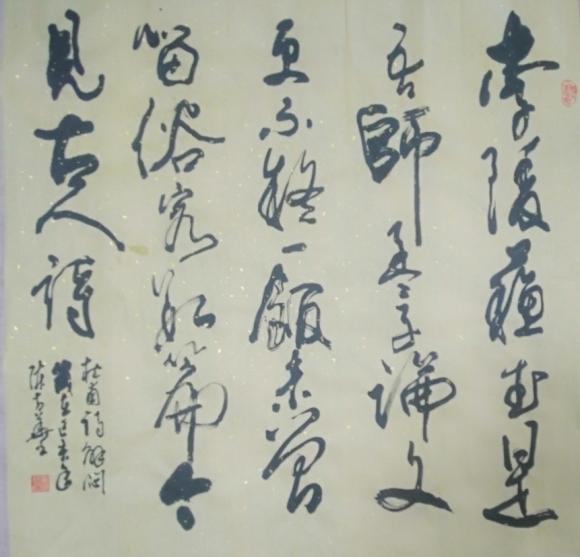 李陵蘇武是
吾師孟子論文
更不疑一飯未曾
留俗客數篇今
見古人詩
杜甫詩解悶
歲在